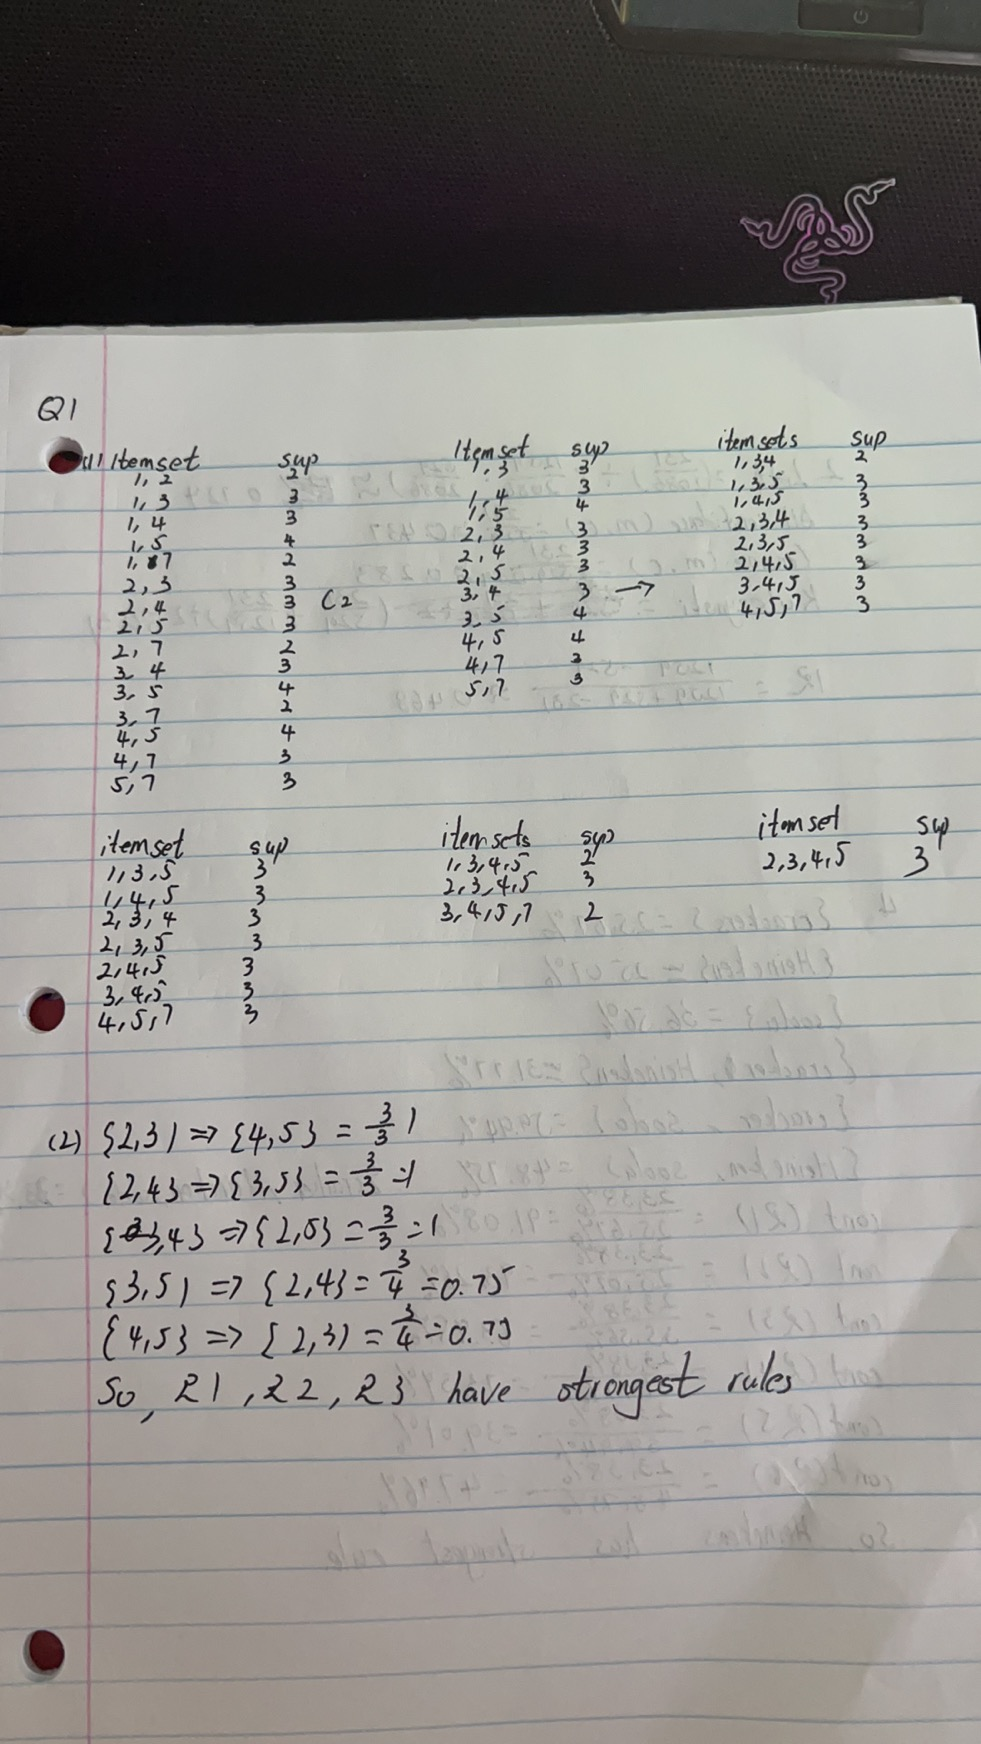 Q1
(1) Itemset sup
1, 2 2
1, 3 3
1, 4 3
1, 5 4
1, 7 2
2, 3 3
2, 4 3
2, 5 3
2, 7 2
3, 4 3
3, 5 4
3, 7 2
4, 5 4
4, 7 3
5, 7 3
C2
Itemset sup
1, 3 3
1, 4 3
1, 5 4
2, 3 3
2, 4 3
2, 5 3
3, 4 3 →
3, 5 4
4, 5 4
4, 7 3
5, 7 3
itemsets sup
1, 3, 4 2
1, 3, 5 3
1, 4, 5 3
2, 3, 4 3
2, 3, 5 3
2, 4, 5 3
3, 4, 5 3
4, 5, 7 3
itemset sup
1, 3, 5 3
1, 4, 5 3
2, 3, 4 3
2, 3, 5 3
2, 4, 5 3
3, 4, 5 3
4, 5, 7 3
itemsets sup
1, 3, 4, 5 2
2, 3, 4, 5 3
3, 4, 5, 7 2
itemset sup
2, 3, 4, 5 3
(2) {2,3} => {4,5} = 3/3 1
{2,4} => {3,5} = 3/3 = 1
{3,4} => {2,5} = 3/3 = 1
{3,5} => {2,4} = 3/4 = 0.75
{4,5} => {2,3} = 3/4 = 0.75
So, R1, R2, R3 have strongest rules